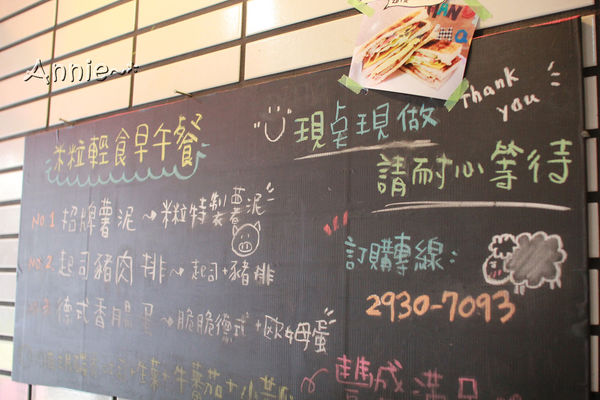 Annie~
米粒輕食早午餐
現桌現做
請耐心等待
Thank you
NO.1 招牌薯泥→米粒特製薯泥
NO.2 起司豬肉排→起司+豬排
德式香腸蛋→脆脆德式+歐姆蛋
訂購專線:
2930-7093
牛蕃茄+小黃
豐盛滿足